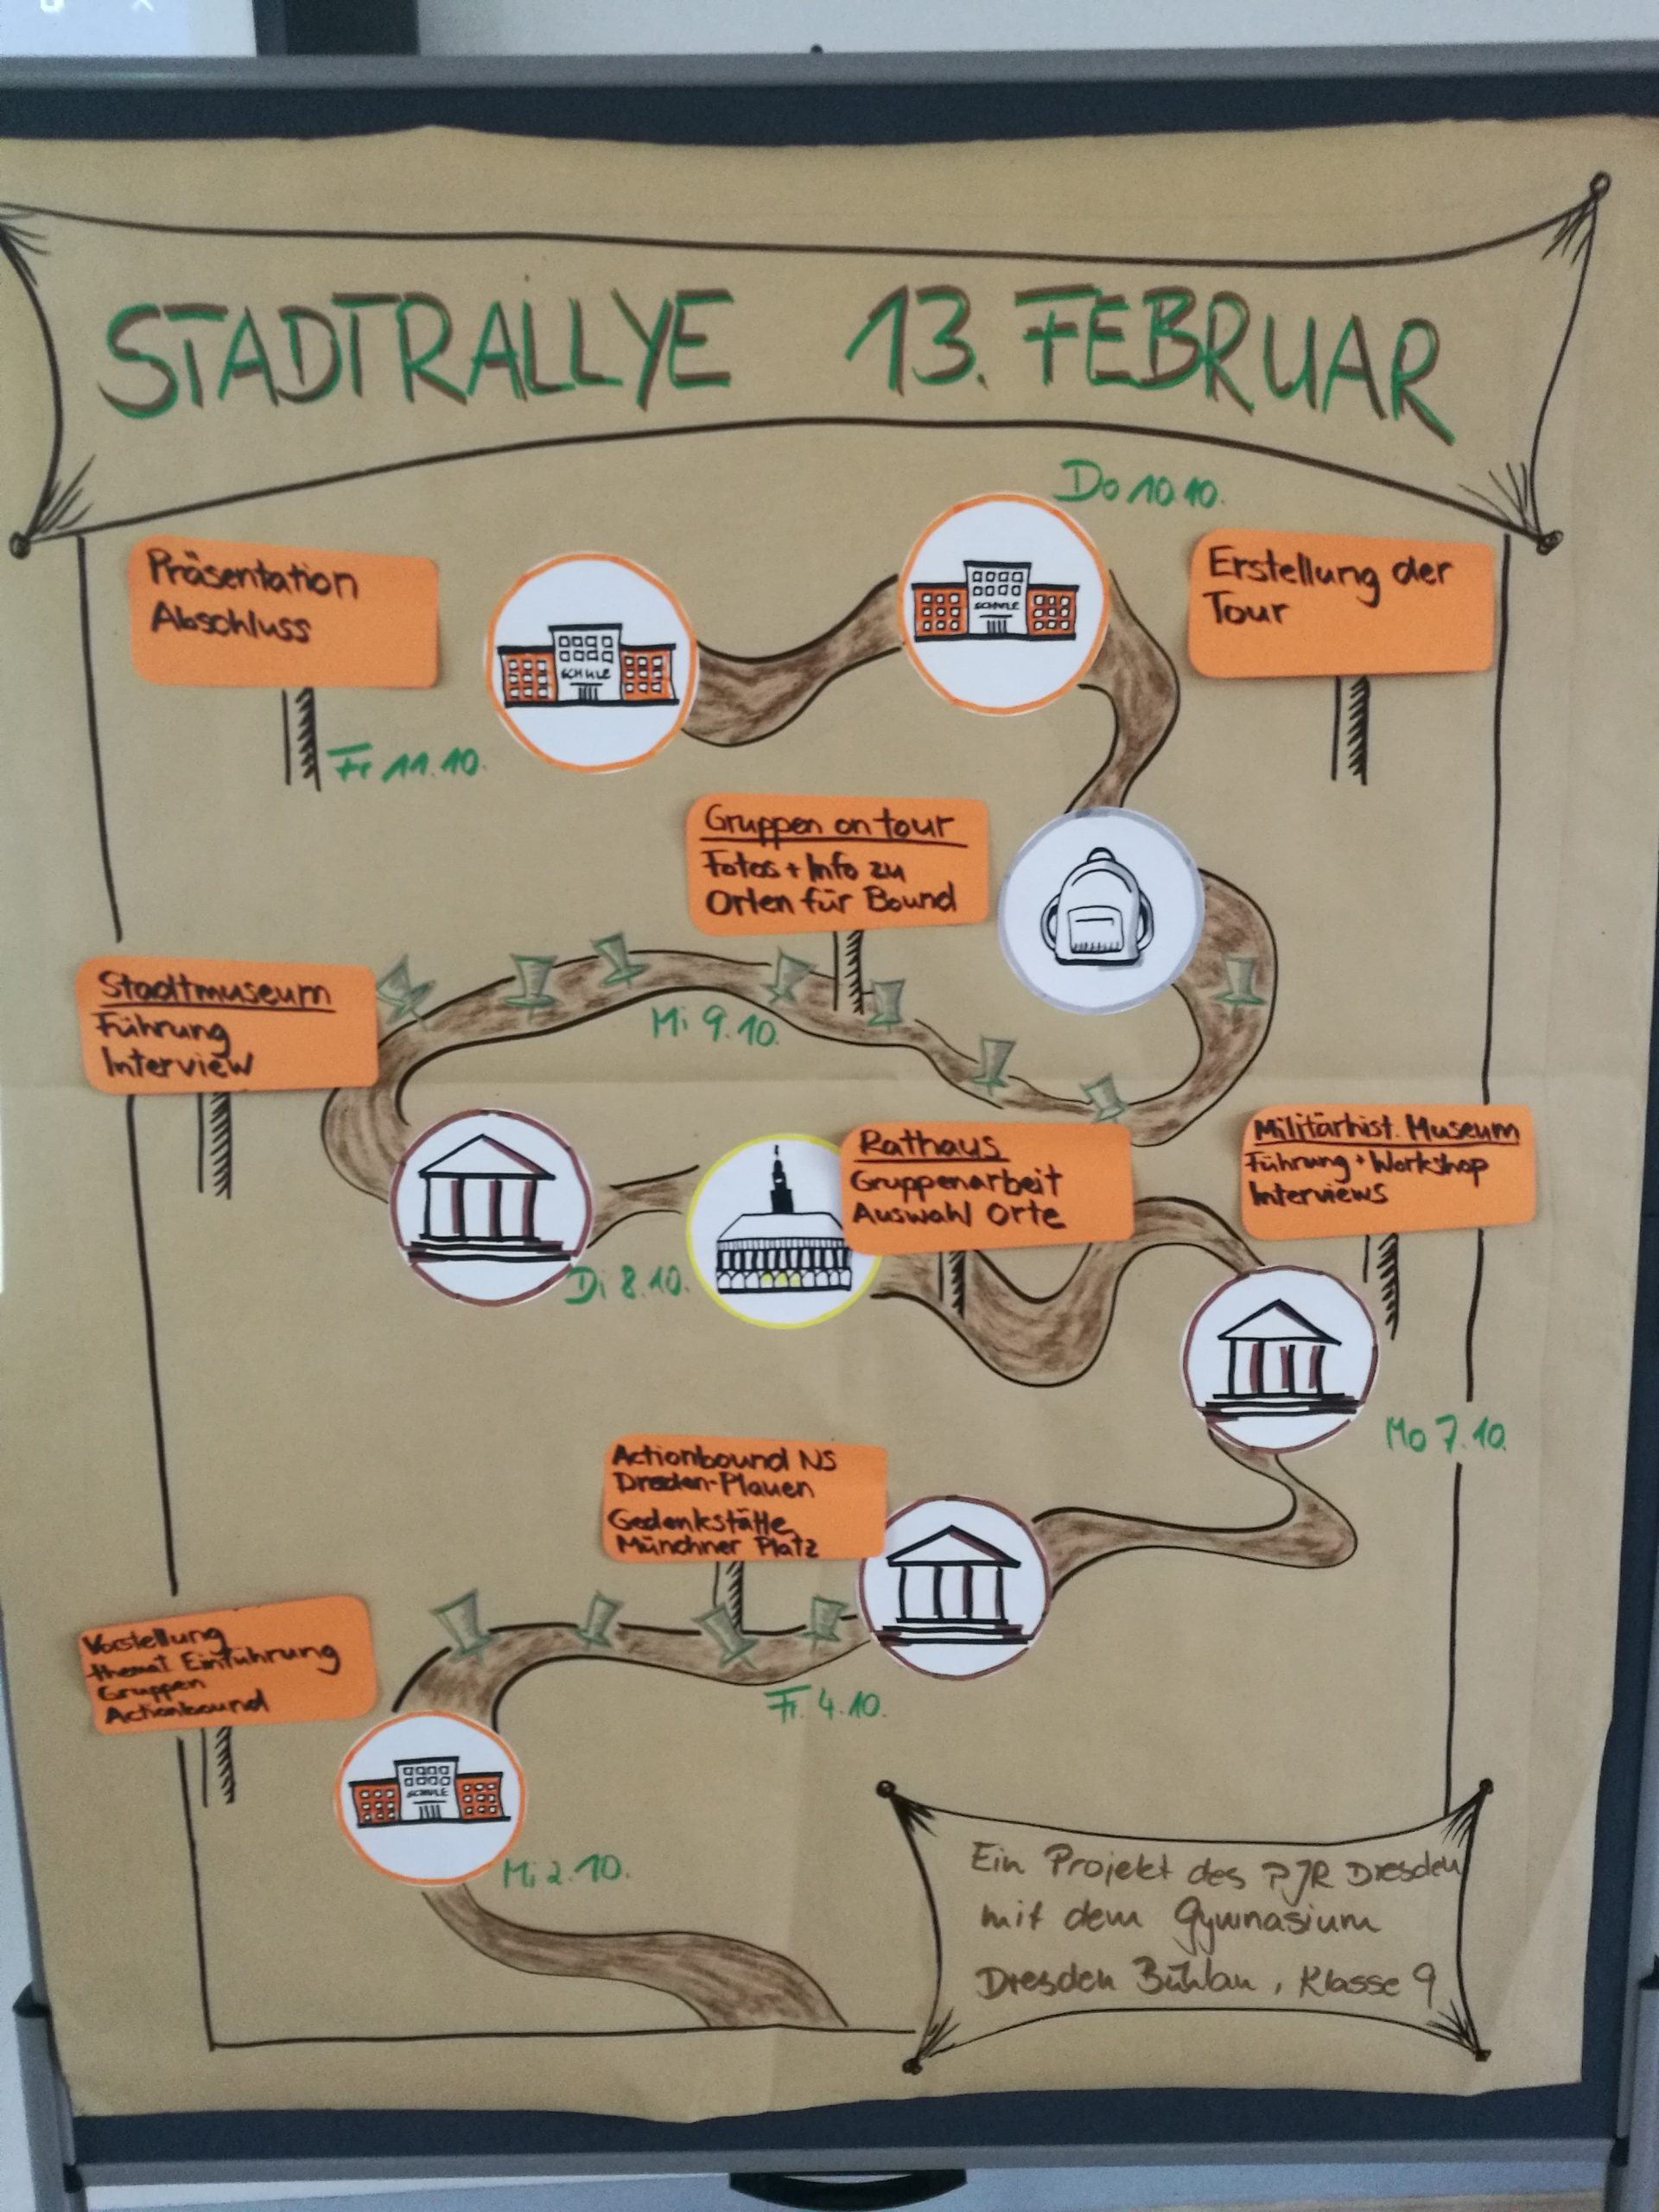 STADTRALLYE 13. FEBRUAR
Do 10.10.
Präsentation
Abschluss
SCHULE
SCHULE
Erstellung der
Tour
Fr 11.10.
Gruppen on tour
Fotos + Info zu
Orten für Bound
Stadtmuseum
Führung
Interview
Mi 9.10.
Rathaus
Gruppenarbeit
Auswahl Orte
Militärhist. Museum
Führung + Workshop
Interviews
Di 8.10.
Mo 7.10.
Actionbound NS
Dresden-Plauen
Gedenkstätte
Münchner Platz
Vorstellung
themat. Einführung
Gruppen
Actionbound
Fr. 4.10.
SCHULE
Mi 2.10.
Ein Projekt des PJR Dresden
mit dem Gymnasium
Dresden Bühlau, Klasse 9